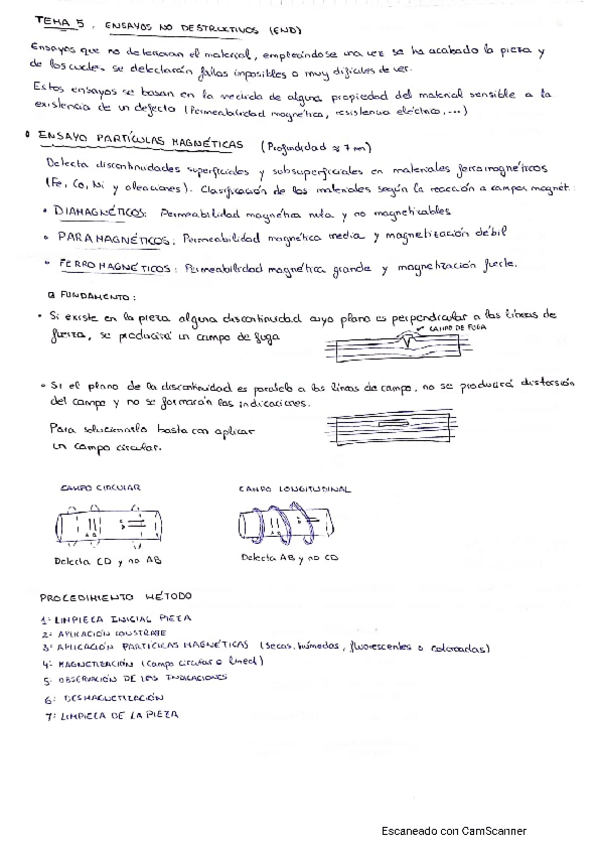 TEMA 5. ENSAYOS NO DESTRUCTIVOS (END)
Ensayos que no deterioran el material, empleándose una vez se ha acabado la pieza y
de los cuales se detectarán fallos imposibles o muy difíciles de ver.
Estos ensayos se basan en la medida de alguna propiedad del material sensible a la
existencia de un defecto (Permeabilidad magnética, resistencia eléctrica, ...)
ENSAYO PARTÍCULAS MAGNÉTICAS (Profundidad ≈ 7 mm)
Detecta discontinuidades superficiales y subsuperficiales en materiales ferromagnéticos
(Fe, Co, Ni y aleaciones). Clasificación de los materiales según la reacción a campos magnét.:
• DIAMAGNÉTICOS: Permeabilidad magnética nula y no magnetizables
• PARAMAGNÉTICOS: Permeabilidad magnética media y magnetización débil
• FERROMAGNÉTICOS: Permeabilidad magnética grande y magnetización fuerte.
FUNDAMENTO:
• Si existe en la pieza alguna discontinuidad cuyo plano es perpendicular a las líneas de
fuerza, se producirá un campo de fuga
CAMPO DE FUGA
• Si el plano de la discontinuidad es paralelo a las líneas de campo, no se producirá distorsión
del campo y no se formarán las indicaciones.
Para solucionarlo basta con aplicar
un campo circular.
CAMPO CIRCULAR CAMPO LONGITUDINAL
Detecta CD y no AB Detecta AB y no CD
PROCEDIMIENTO MÉTODO
1: LIMPIEZA INICIAL PIEZA
2: APLICACIÓN
3: APLICACIÓN PARTÍCULAS MAGNÉTICAS (secas, húmedas, fluorescentes o coloreadas)
4: MAGNETIZACIÓN (Campo circular o lineal)
5: OBSERVACIÓN DE LAS INDICACIONES
6: DESMAGNETIZACIÓN
7: LIMPIEZA DE LA PIEZA
Escaneado con CamScanner